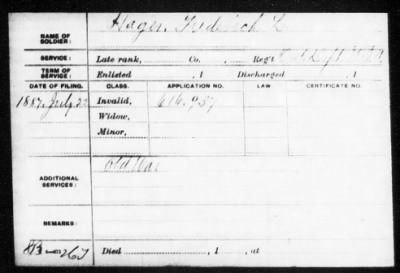 NAME OF SOLDIER: Hager, Frederick L
SERVICE: Late rank, Co. Reg't
TERM OF SERVICE: Enlisted , 1 Discharged , 1
DATE OF FILING. CLASS. APPLICATION NO. LAW CERTIFICATE NO.
1887, July 22 Invalid, 616.937
Widow,
Minor,
ADDITIONAL SERVICES: Old War
REMARKS:
Died , 1 , at